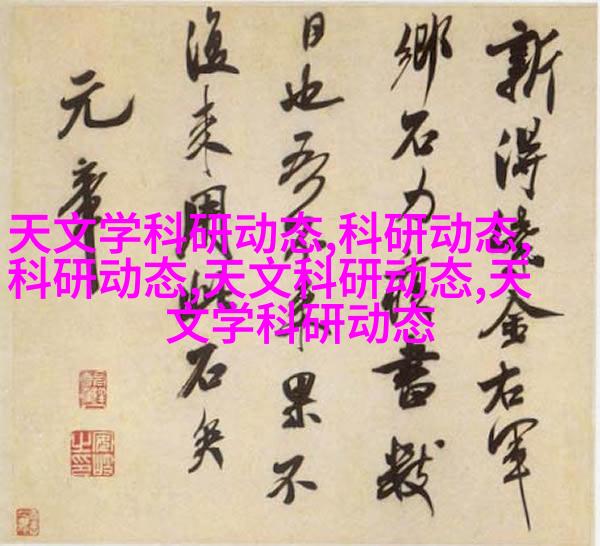 天文学科研动态,科研动态,
科研动态,天文科研动态,天
文学科研动态
新得金右軍
鄉石力書數
日也吾來果不
復来石矣
元章